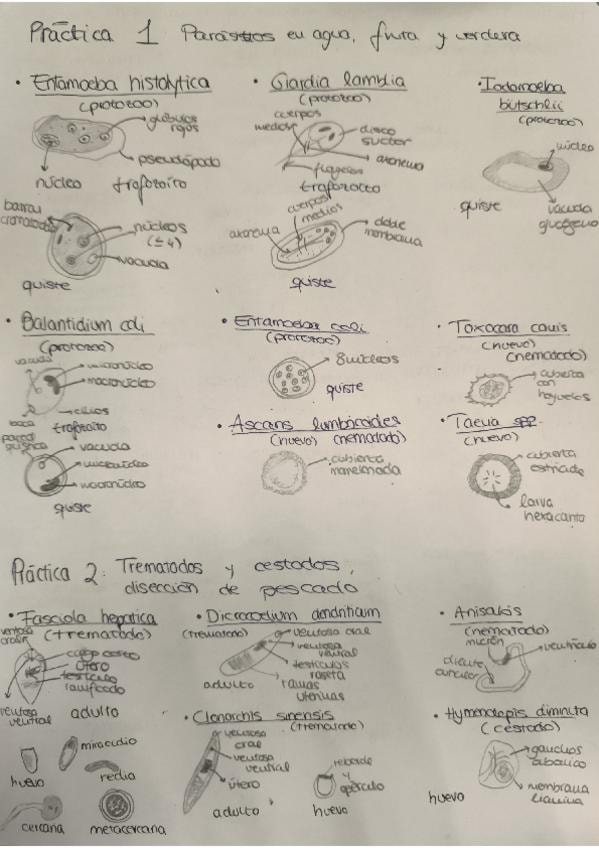 Práctica 1 Parásitos en agua, fruta y verdura
• Entamoeba histolytica
(protozoo)
glóbulos
rojos
pseudópodo
núcleo
trofozoito
barras
cromatoides
núcleos
(≤ 4)
vacuola
quiste
• Giardia lamblia
(protozoo)
cuerpos
medios
disco
suctor
axonema
flagelos
trofozoito
cuerpos
medios
axonema
doble
membrana
quiste
• Iodamoeba
bütschlii
(protozoo)
núcleo
quiste
vacuola
glucógeno
• Balantidium coli
(protozoo)
vacuola
micronúcleo
macronúcleo
cilios
boca
trofozoito
pared
quística
vacuola
micronúcleo
macronúcleo
quiste
• Entamoeba coli
(protozoo)
8 núcleos
quiste
• Toxocara canis
(huevo)
(nematodo)
cubierta
con
hoyuelos
• Ascaris lumbricoides
(huevo) (nematodo)
cubierta
mamelonada
• Taenia spp.
(huevo)
cubierta
estriada
larva
hexacanta
Práctica 2: Trematodos y cestodos,
disección de pescado
• Fasciola hepatica
(trematodo)
ventosa
oral
útero
testículo
ramificado
ventosa
ventral
adulto
miracidio
huevo
redia
cercaria
metacercaria
• Dicrocoelium dendriticum
(trematodo)
ventosa oral
ventosa
ventral
testículos
roseta
adulto
ramas
uterinas
• Clonorchis sinensis
(trematodo)
ventosa
oral
ventosa
ventral
útero
adulto
reborde
y
opérculo
huevo
• Anisakis
(nematodo)
ventrículo
diente
• Hymenolepis diminuta
(cestodo)
ganchos
membrana
huevo